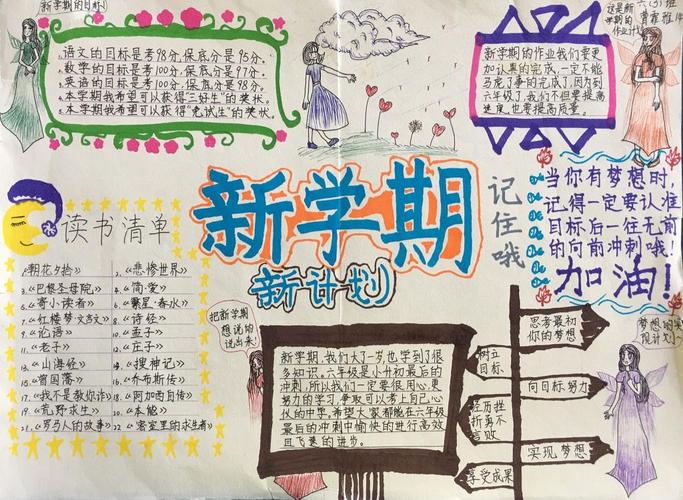 新学期的目标!
1.语文的目标是考98分,保底分是95分。
2.数学的目标是考100分,保底分是97分。
3.英语的目标是考100分,保底分是98分。
4.本学期我希望可以获得“三好生”的奖状。
5.本学期我希望可以获得“免试生”的奖状
这是新
学期的
作业计
六(3)班
新学期的作业我们要更
加认真的完成,一定不能
马虎了事的完成了,因为到
六年级了,我们不但要提高
速度,也要提高质量。
新学期
新计划
记住哦
当你有梦想时,
记得一定要认准
目标后一往无前
的向前冲刺哦!
加油!
读书清单
1.《朝花夕拾》
2.《悲惨世界》
3.《巴黎圣母院》
4.《简·爱》
5.《寄小读者》
6.《繁星·春水》
7.《红楼梦·文言文》
8.《诗经》
9.《论语》
10.《孟子》
11.《老子》
12.《庄子》
13.《山海经》
14.《搜神记》
15.《曾国藩》
16.《乔布斯传》
17.《我不是教你诈》
18.《阿加西自传》
19.《荒野求生》
20.《本能》
21.《罗马人的故事》
22.《密室里的求生者》
把新学期
想说的
说出来!
新学期,我们大了一岁,也学到了很
多知识。六年级是小升初最后的
冲刺,所以我们一定要很用心,更
努力的学习,争取可以考上自己心
仪的中学,希望大家都能在六年级
最后的冲刺中愉快的进行高效
且飞速的进步。
思考最初
你的梦想
树立
目标
向目标努力
经历挫
折勇不
言败
实现梦想
享受成果
梦想的实
现计划